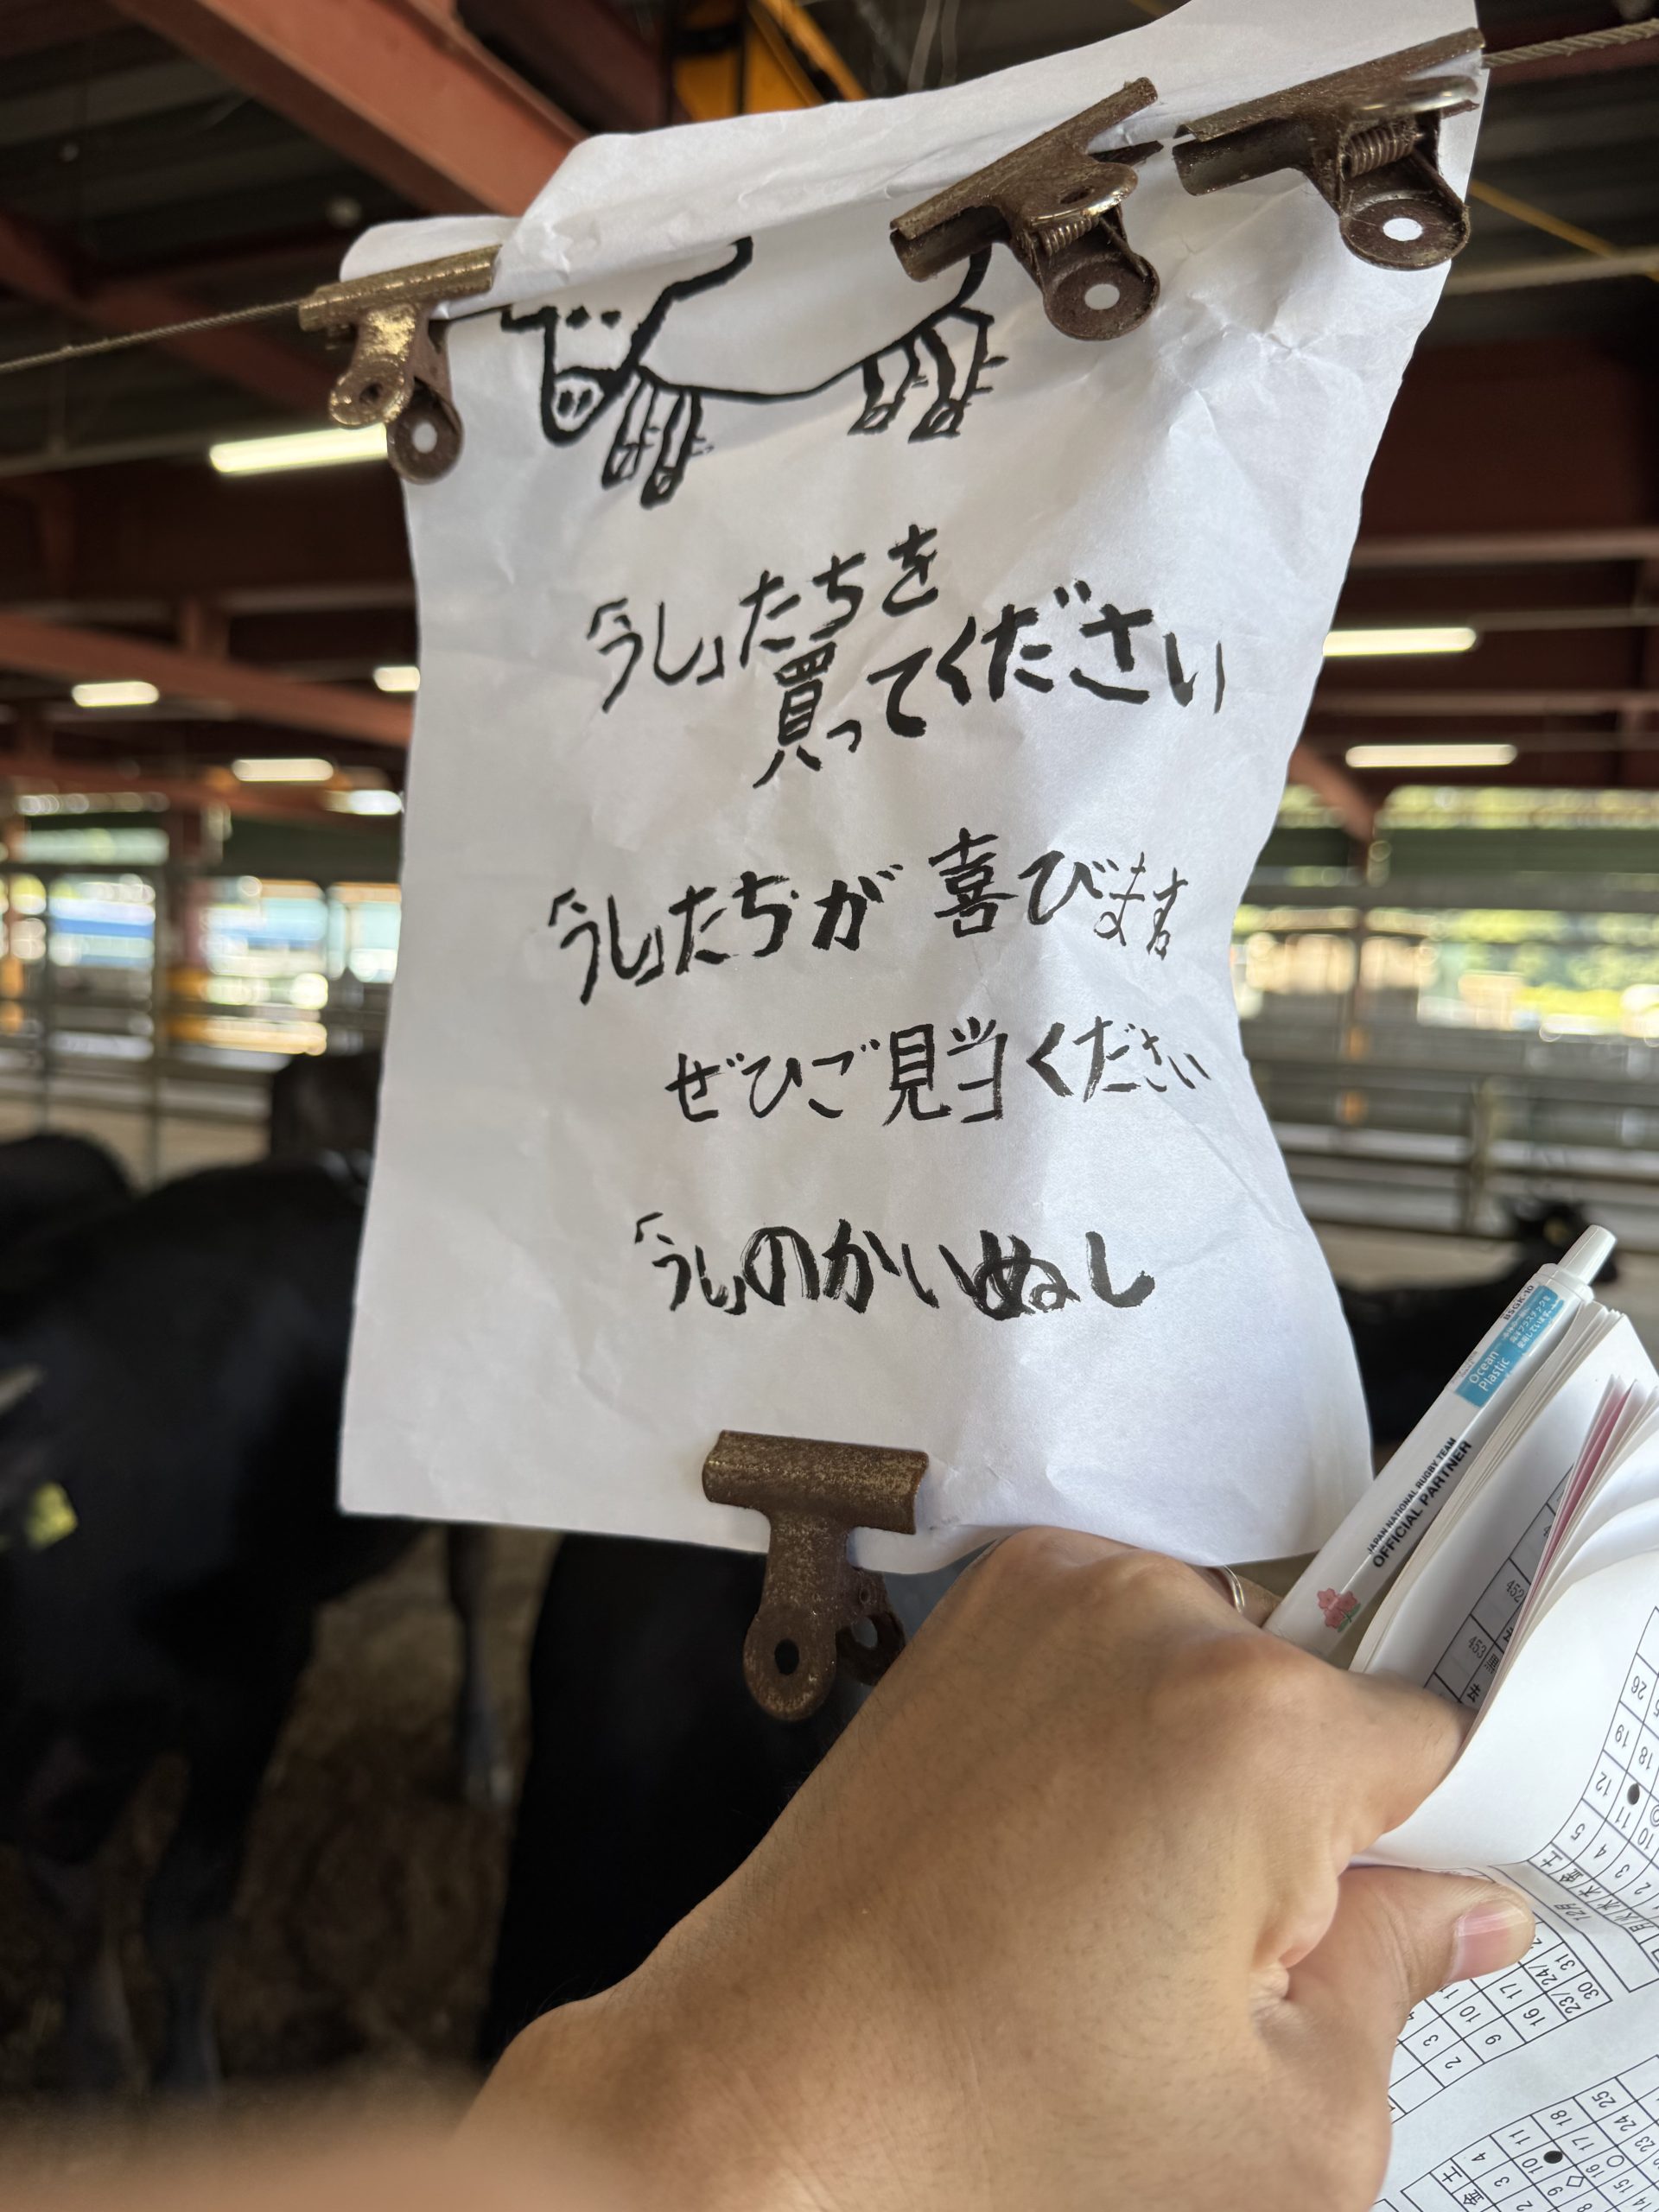 「うし」たちを
買ってください
「うし」たちが喜びます
ぜひご見当ください
「うし」のかいぬし
BSGK-10
Ocean
Plastic
JAPAN NATIONAL RUGBY TEAM
OFFICIAL PARTNER
452
453